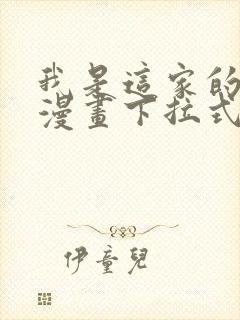 我是這家的
漫畫下拉式
伊童兒